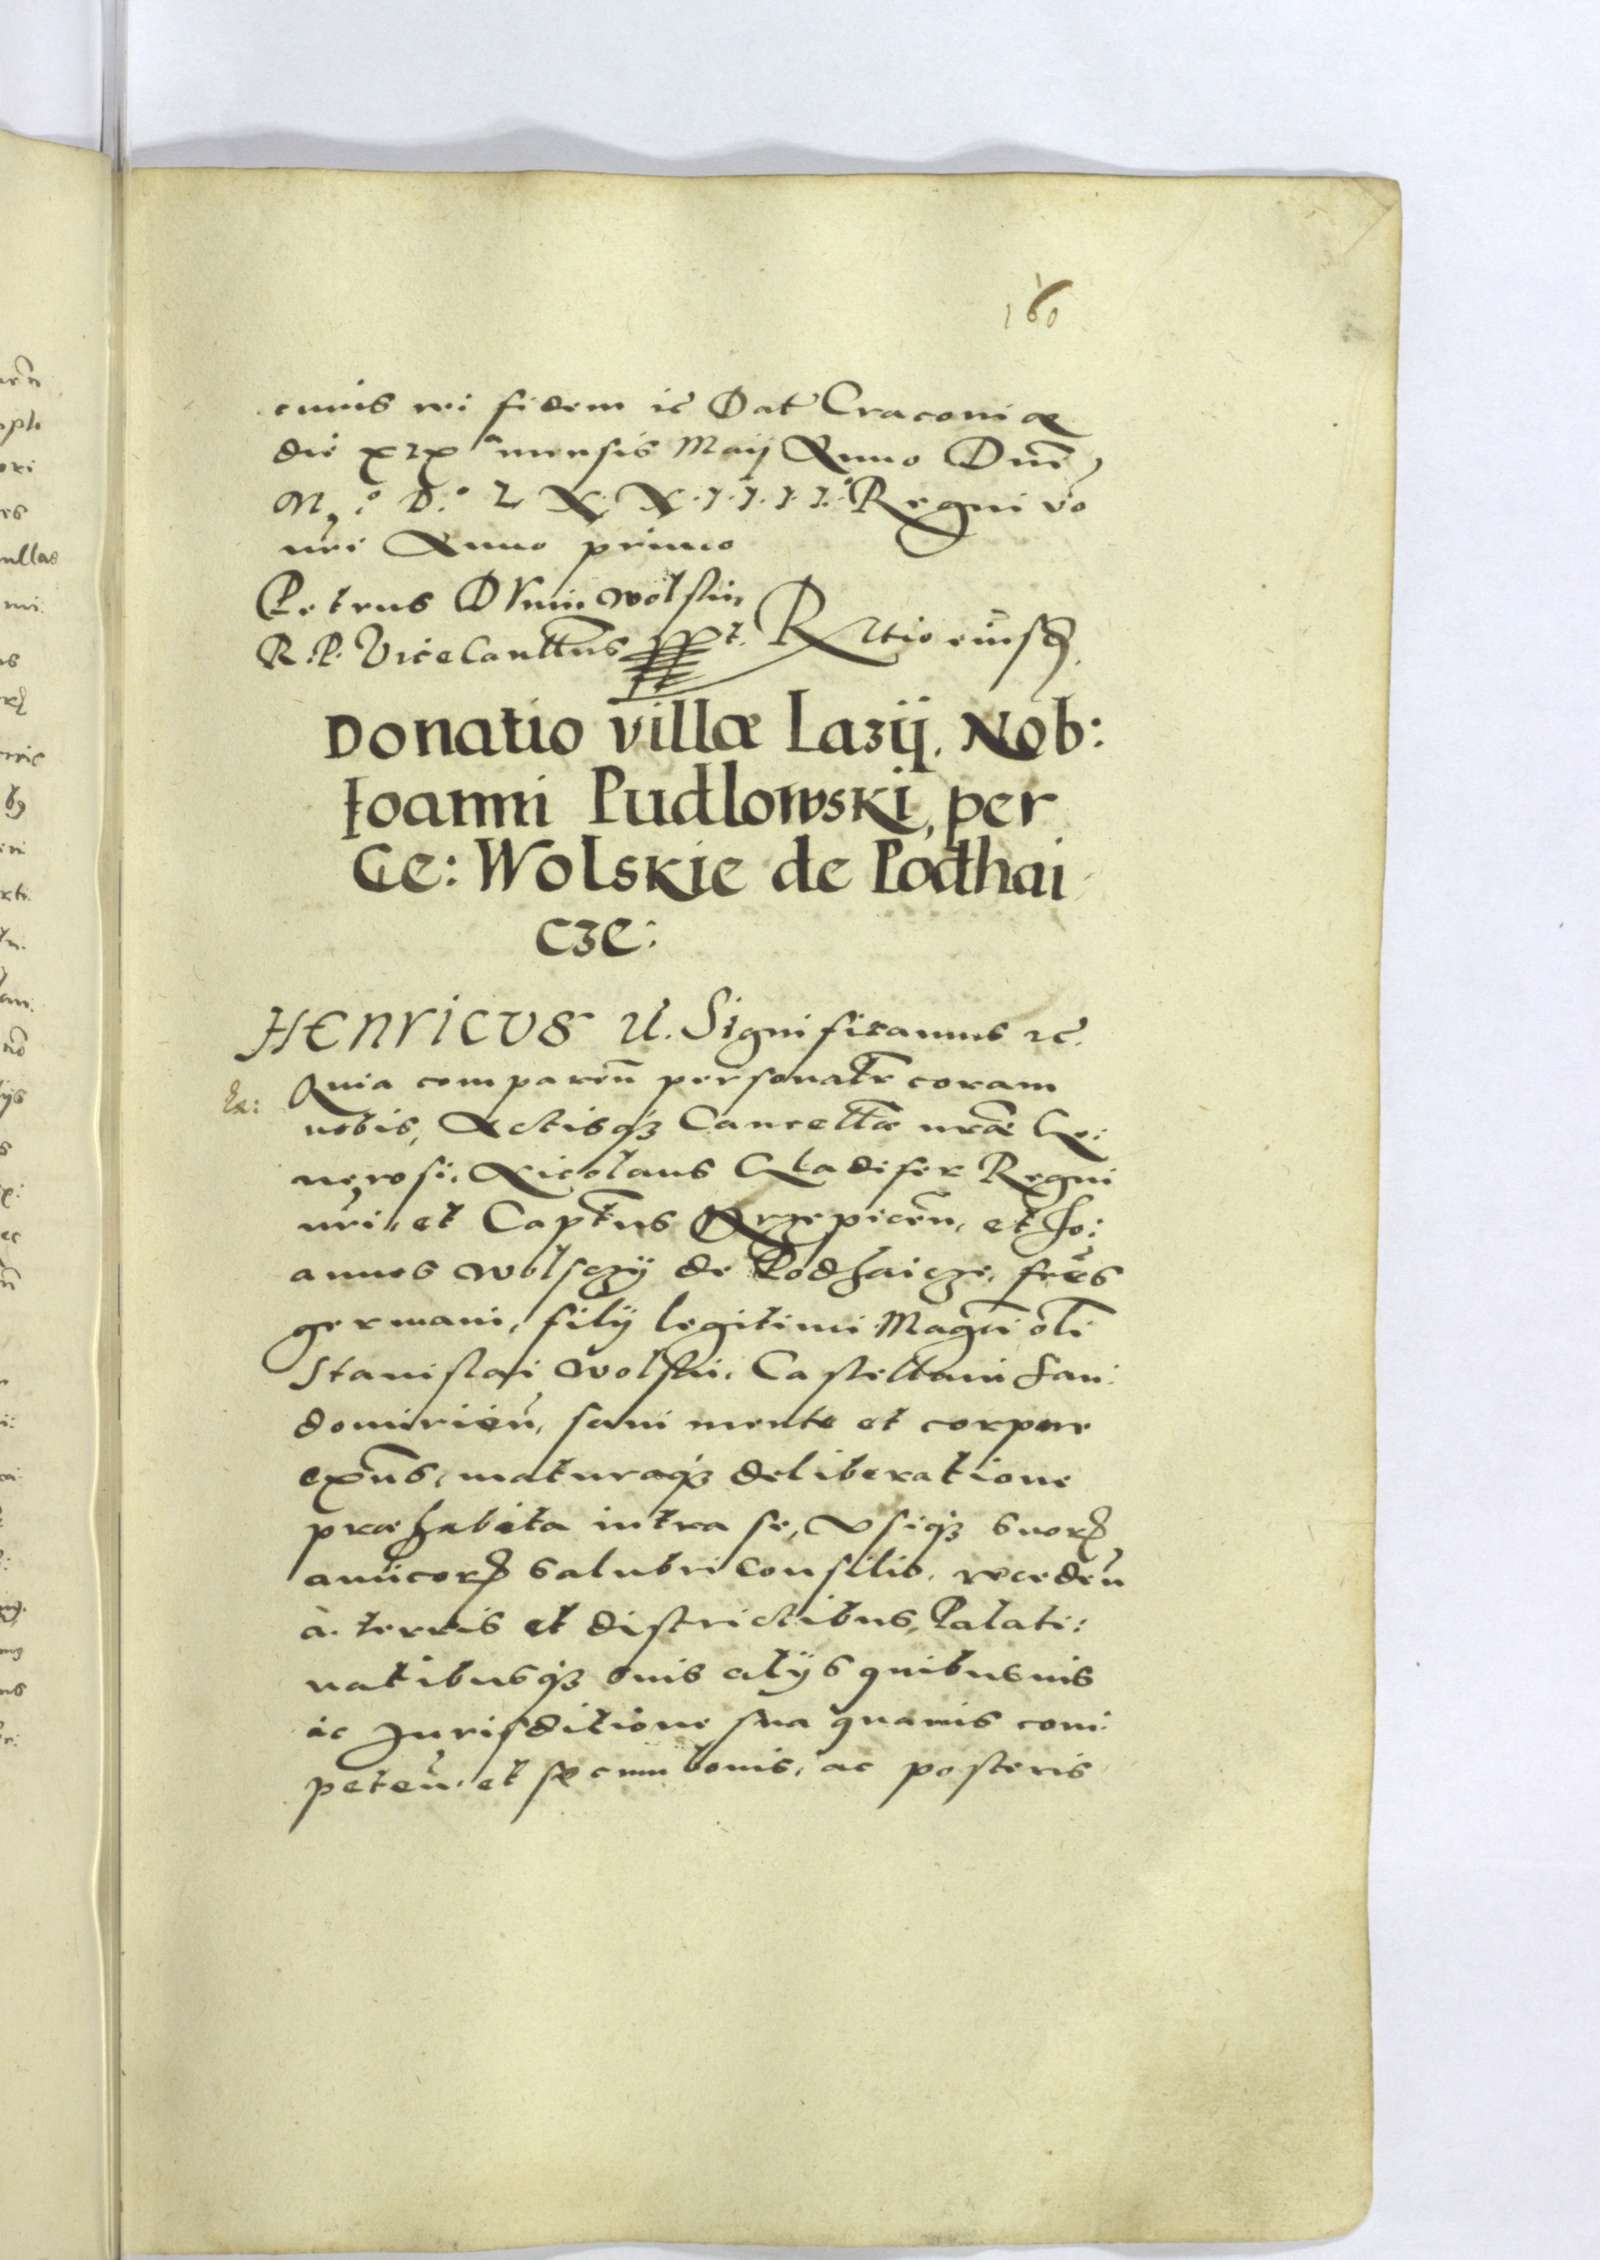 160
cuius rei fidem ic̃ Dat Craconiæ
die xix mensis Maij Anno Dni,
M.º D.º L X X.I.I.I.I.º Regni vo
nri Anno primo
Petrus Dunin wolski,
R.P. Vicecantlrius sspt. Rltio eiusd.
Donatio villæ Lazij. Nob:
Ioanni Pudlowski, per
Ge: Wolskie de Podhai
cze:
HENRICVS Ut. Significamus ic̃.
Ex: Quia comparen personalr coram
nobis, Actisq3 Cancellæ nræ Ge:
nerosi, Nicolaus Gladifer Regni
nri, et Captnus Krzepicen, et Jo:
annes wolsczij de Podhaicze, frēs
germani, filij legitimi Magci oli
Stanislai wolski, Castellani San:
domirien, sani mente et corpore
exñs, maturaq3 deliberatione
præhabita intra se, Usiq3 suor
amicor salubri consilio, receden
à terris et districtibus, Palati:
natibusq3 suis alijs quibusuis
ac Jurisditione sua quauis com:
peten. et se cum bonis, ac posteris